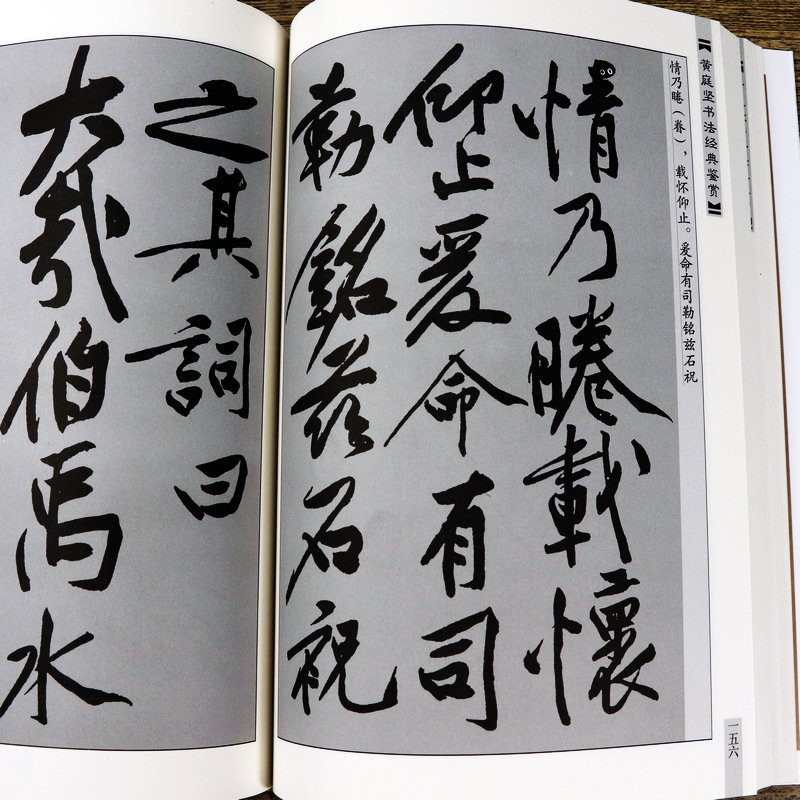 【黄庭坚书法经典鉴赏】
情乃睠（眷），载怀仰止。爰命有司勒铭兹石祝
情乃睠載懷
仰止爰命有司
勒銘茲石祝
之其詞曰
大哉伯禹水
一五六